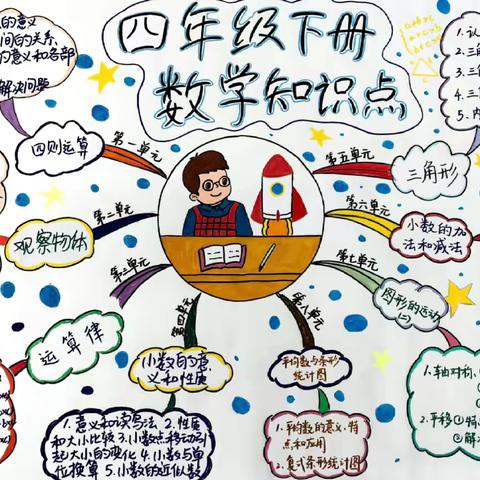 四年级下册
数学知识点
的意义
间的关系
的意义和各部
解决问题
四则运算
第一单元
观察物体
第二单元
运算律
第三单元
小数的意
义和性质
第四单元
1.意义和读写法 2.性质
和大小比较 3.小数点移动引
起大小的变化 4.小数与单
位换算 5.小数的近似数
平均数与条形
统计图
第八单元
1.平均数的意义、特
点和应用
2.复式条形统计图
图形的运动
(二)
第七单元
1.轴对称
2.平移①特
②解
小数的加
法和减法
第六单元
三角形
第五单元
1.认
2.三角
3.三角
4.三
5.内